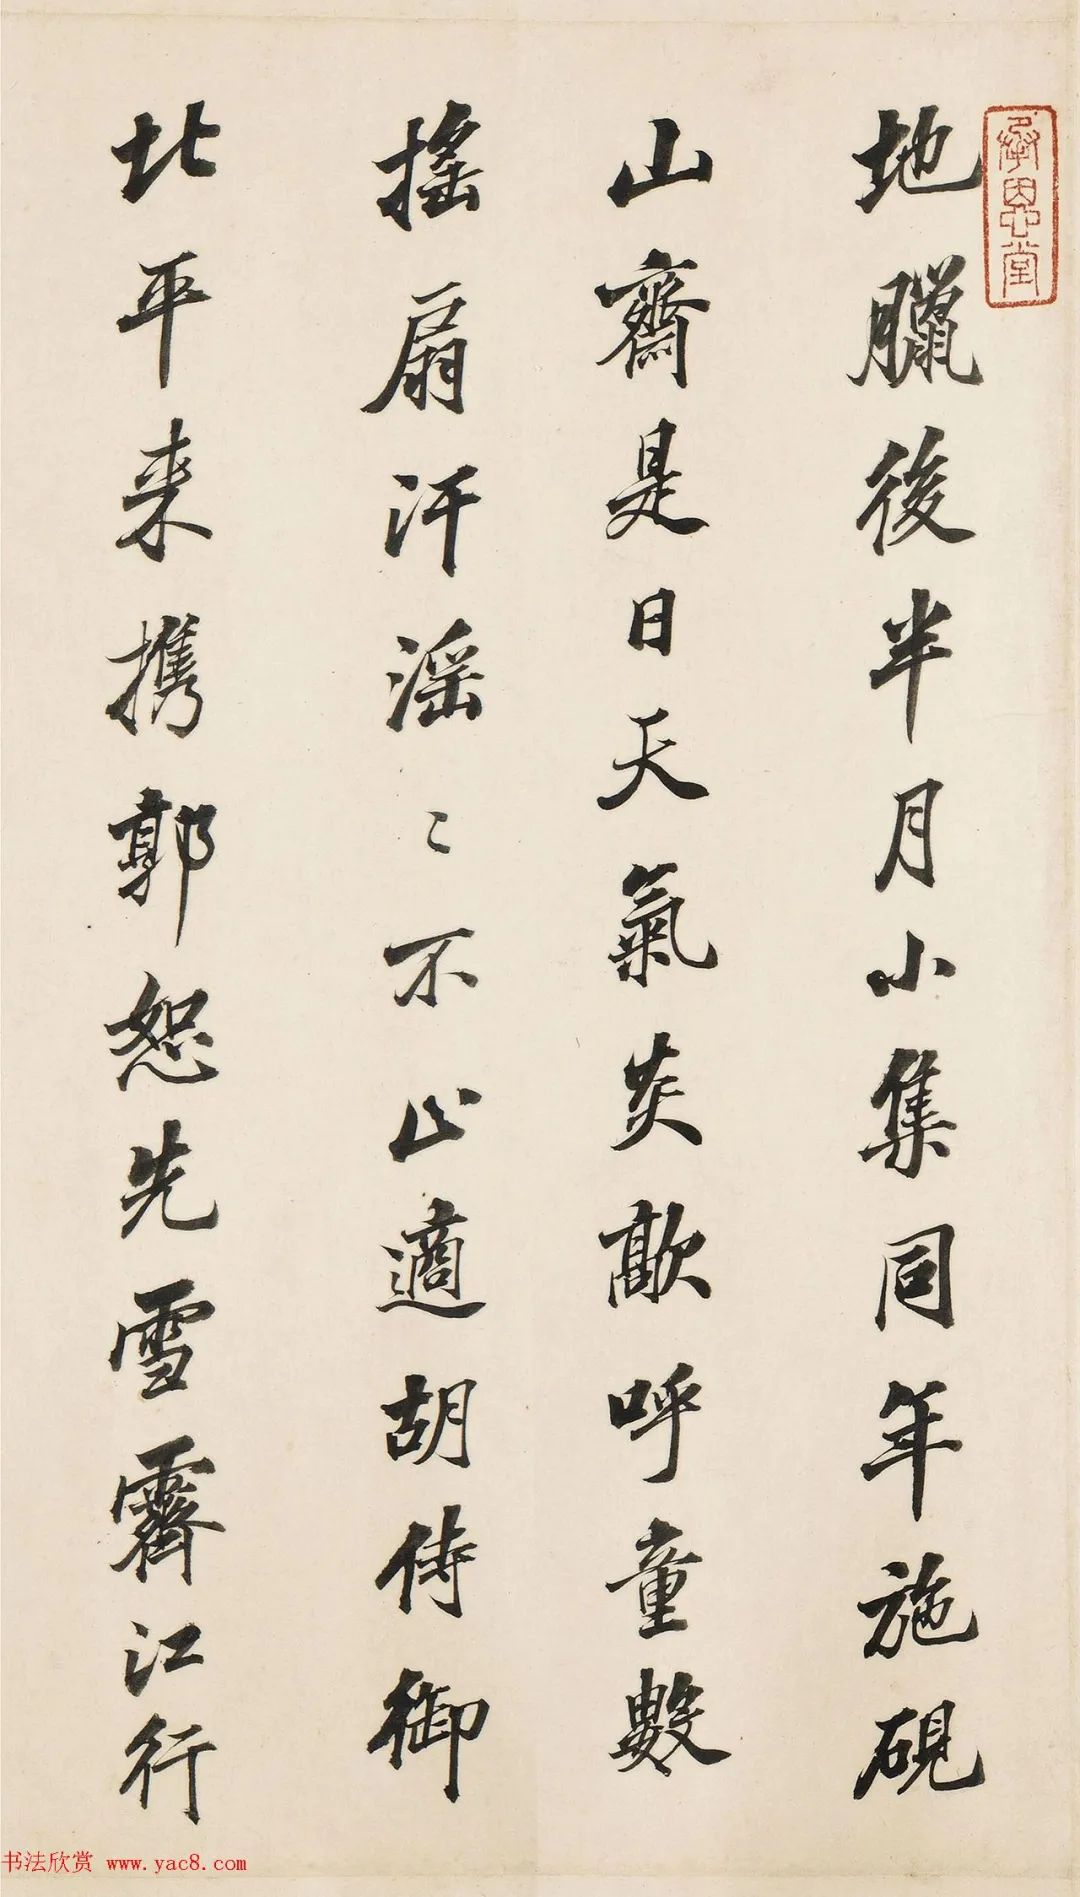 承恩堂
地臘後半月小集同年施硯
山齋是日天氣炎歊呼童數
搖扇汗滛〻不止適胡侍御
北平来携郭恕先雪霽江行
书法欣赏 www.yac8.com